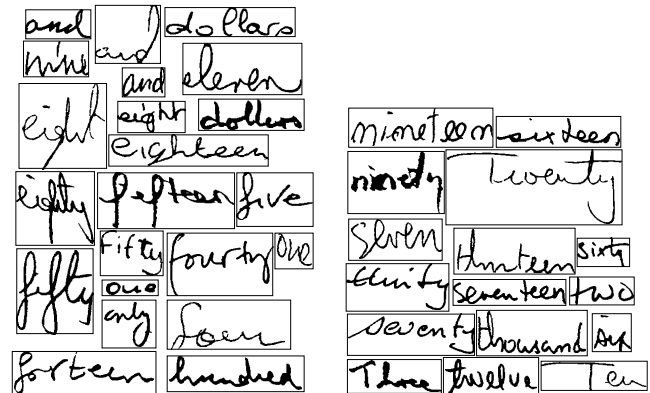 and and dollars
nine and eleven
eight eight dollars
eighteen
eighty fifteen five
fifty fifty fourty one
one
only four
forteen hundred
nineteen sixteen
ninety Twenty
seven thirteen sixty
thirty seventeen two
seventy thousand six
Three twelve Ten